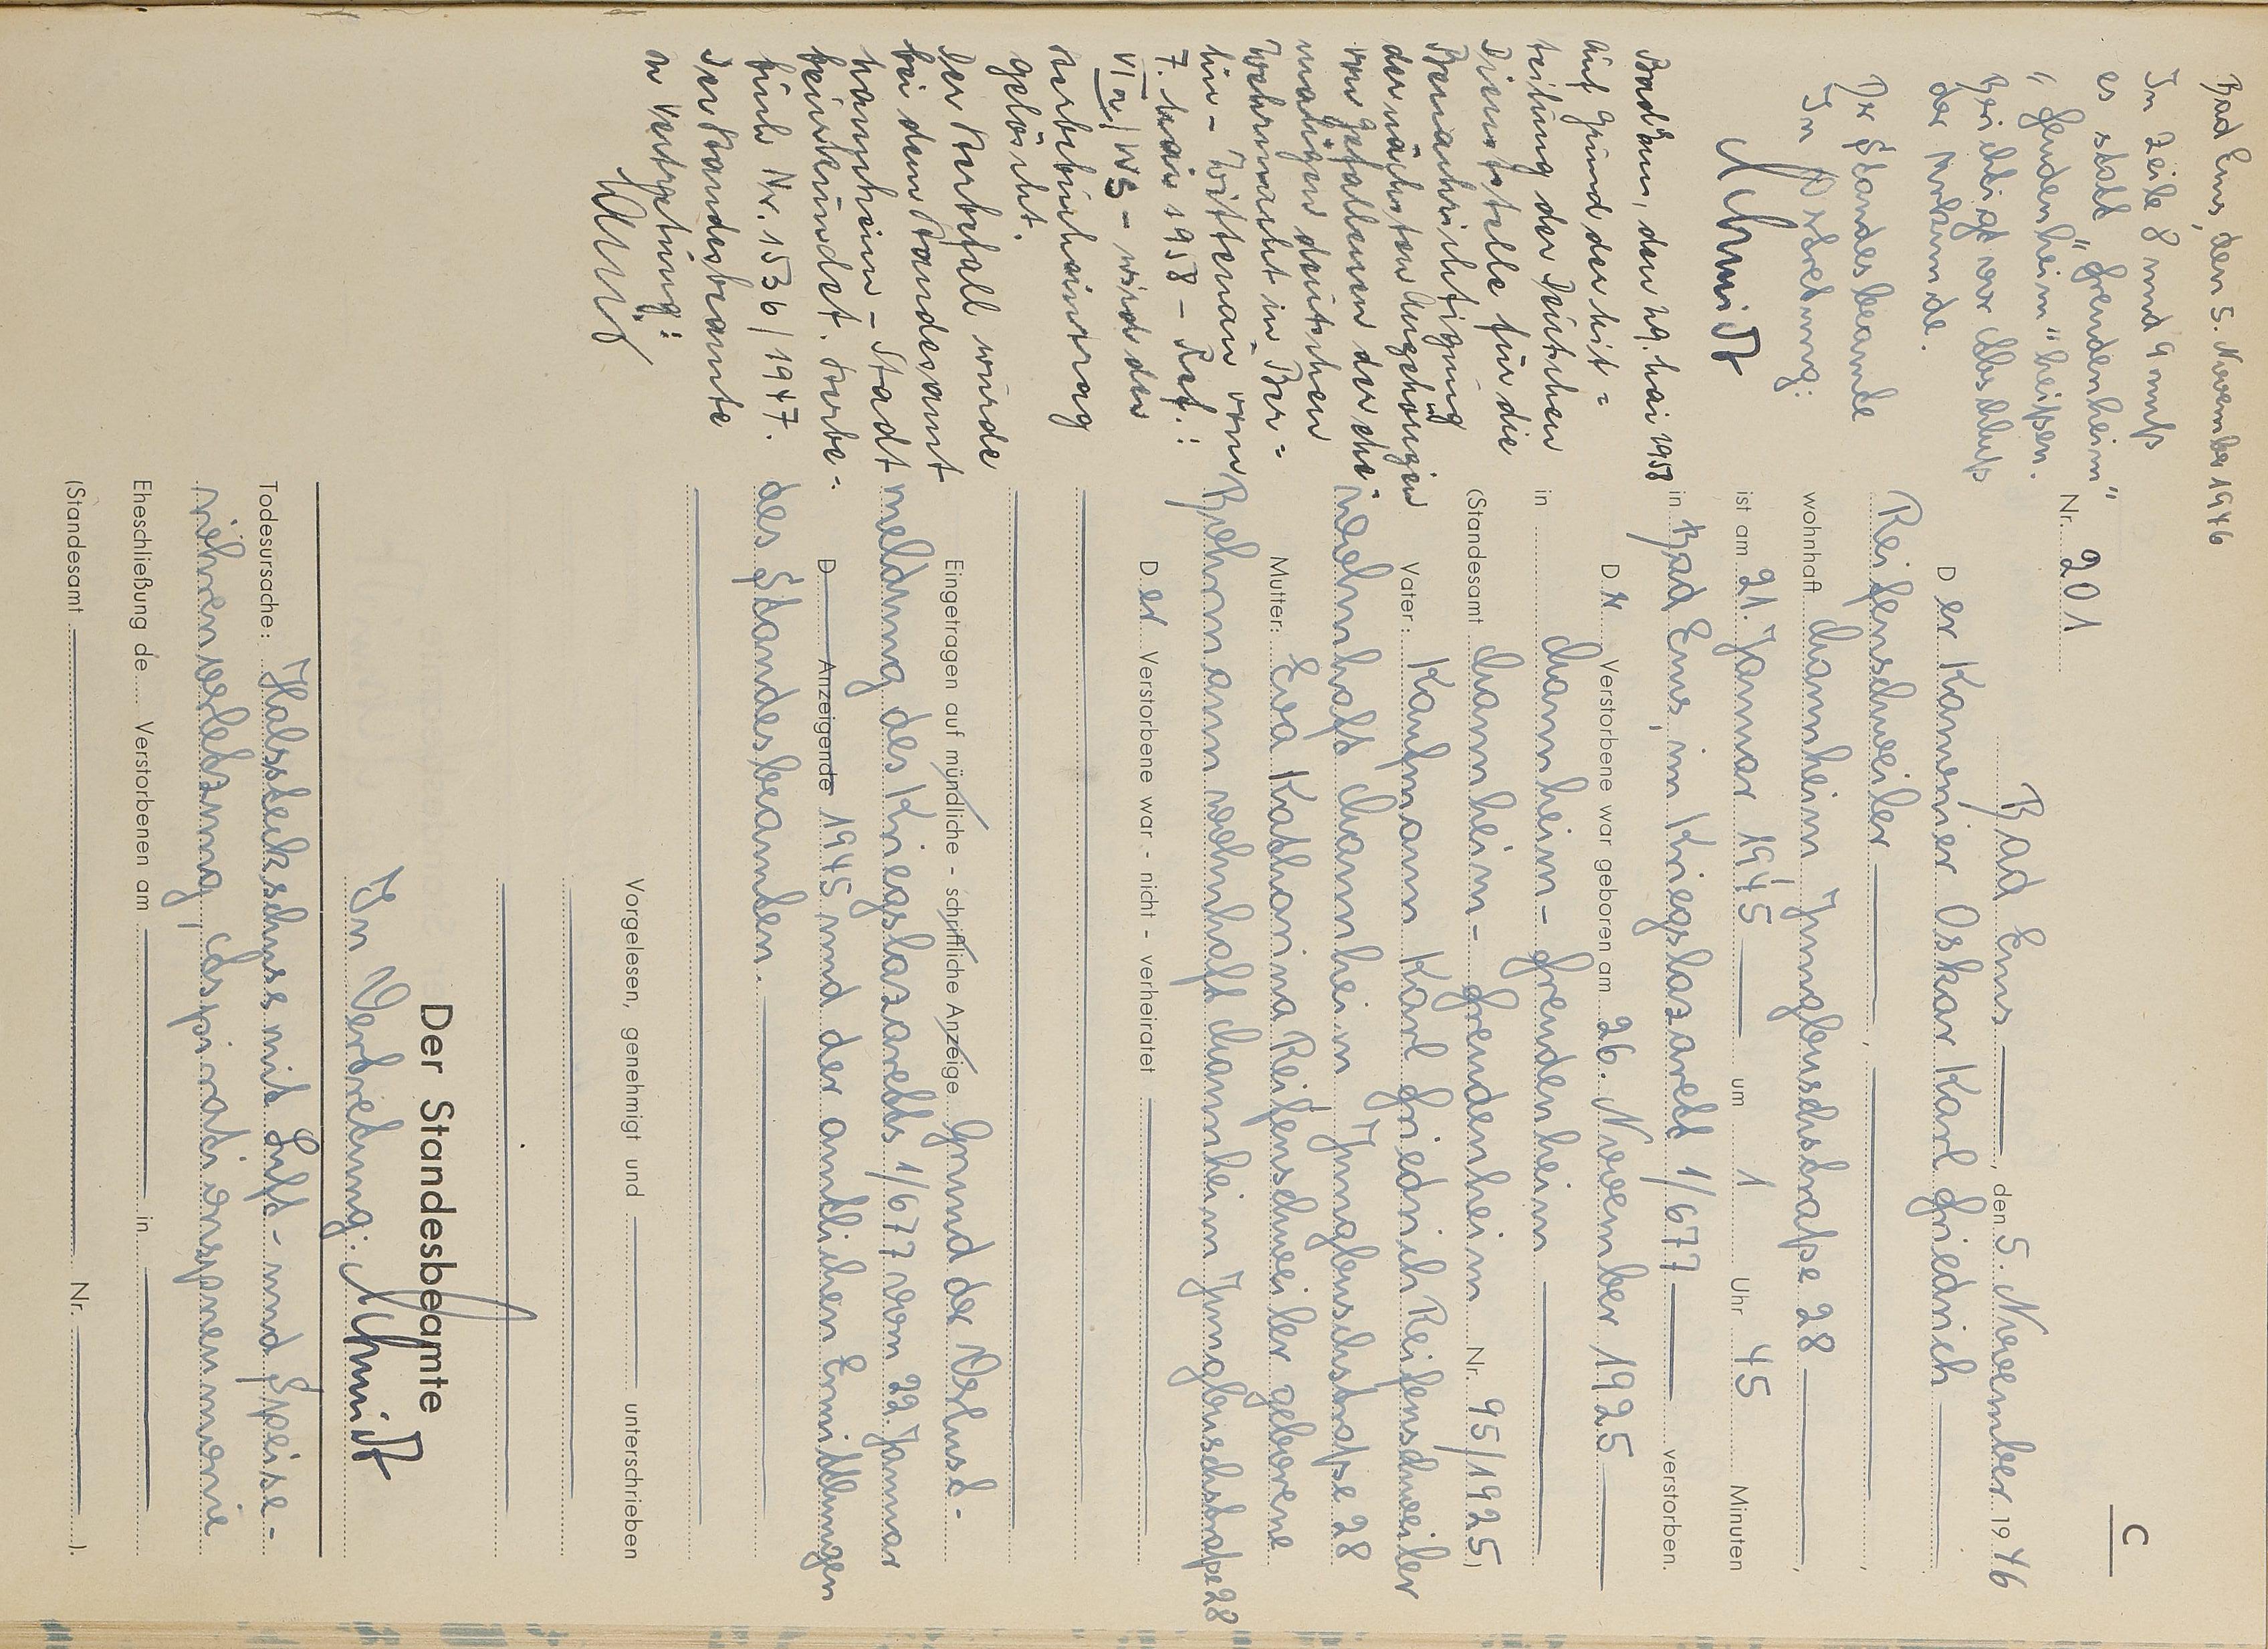 C
Nr. 201
Bad Ems, den 5. November 1946
Der Kanonier Oskar Karl Friedrich
Reifenschweiler
wohnhaft Mannheim Jungbuschstraße 28
ist am 21. Januar 1945 um 1 Uhr 45 Minuten
in Bad Ems, im Kriegslazarett 1/677 verstorben.
Der Verstorbene war geboren am 26. November 1925
in Mannheim-Freudenheim
(Standesamt Mannheim-Freudenheim Nr. 95/1925)
Vater: Kaufmann Karl Friedrich Reifenschweiler
wohnhaft Mannheim Jungbuschstraße 28
Mutter: Eva Katharina Reifenschweiler geborene
Behrmann wohnhaft Mannheim Jungbuschstraße 28
Der Verstorbene war - nicht - verheiratet
Eingetragen auf mündliche - schriftliche Anzeige Grund der Verlust-
meldung des Kriegslazaretts 1/677 vom 22. Januar
D Anzeigende 1945 und der amtlichen Ermittlungen
des Standesbeamten.
Vorgelesen, genehmigt und unterschrieben
Der Standesbeamte
In Vertretung: Schmidt
Todesursache: Halssteckschuss mit Luft- und Speise-
röhrenverletzung, Aspirationspneumonie
Eheschließung de Verstorbenen am in
(Standesamt Nr. ).
Bad Ems, den 5. November 1946
In Zeile 8 und 9 muß
es statt "Freudenheim"
"Feudenheim" heißen.
Berichtigt vor Abschluß
der Urkunde.
Der Standesbeamte
In Vertretung:
Schmidt
Bad Ems, den 29. Mai 1958
Auf Grund der Mit=
teilung der Deutschen
Dienststelle für die
Benachrichtigung
der nächsten Angehörigen
von Gefallenen der ehe=
maligen deutschen
Wehrmacht in Ber=
lin - Wittenau vom
7. Mai 1958 - Ref.:
VIa/WS - wird der
Sterbebucheintrag
gelöscht.
Der Sterbefall wurde
bei dem Standesamt
Mannheim - Stadt
beurkundet. Sterbe=
buch Nr. 1536/1947.
Der Standesbeamte
In Vertretung: